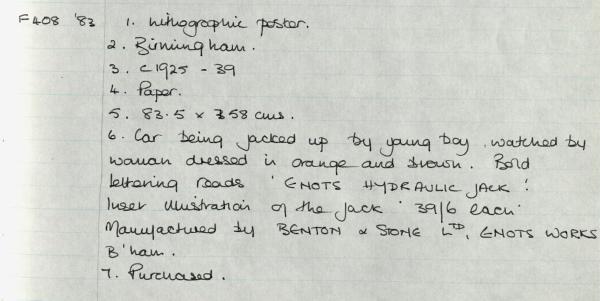 F408 '83 1. Lithographic poster.
2. Birmingham.
3. c1925 - 39
4. Paper.
5. 83.5 x 58 cms.
6. Car being jacked up by young boy, watched by
woman dressed in orange and brown. Bold
lettering reads 'ENOTS HYDRAULIC JACK'.
Inset illustration of the jack '39/6 each'
Manufactured by BENTON & STONE LTD, ENOTS WORKS
B'ham.
7. Purchased.